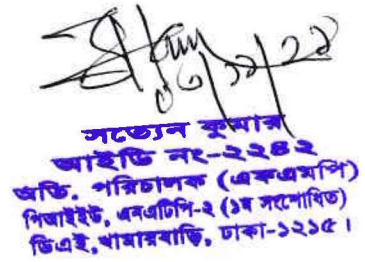 ০৬/১২/২২
সত্যেন কুমার
আইডি নং-২২৪২
অতি. পরিচালক (একএমপি)
পিআইইউ, এনএটিপি-২ (১ম সংশোধিত)
ডিএই, খামারবাড়ি, ঢাকা-১২১৫।